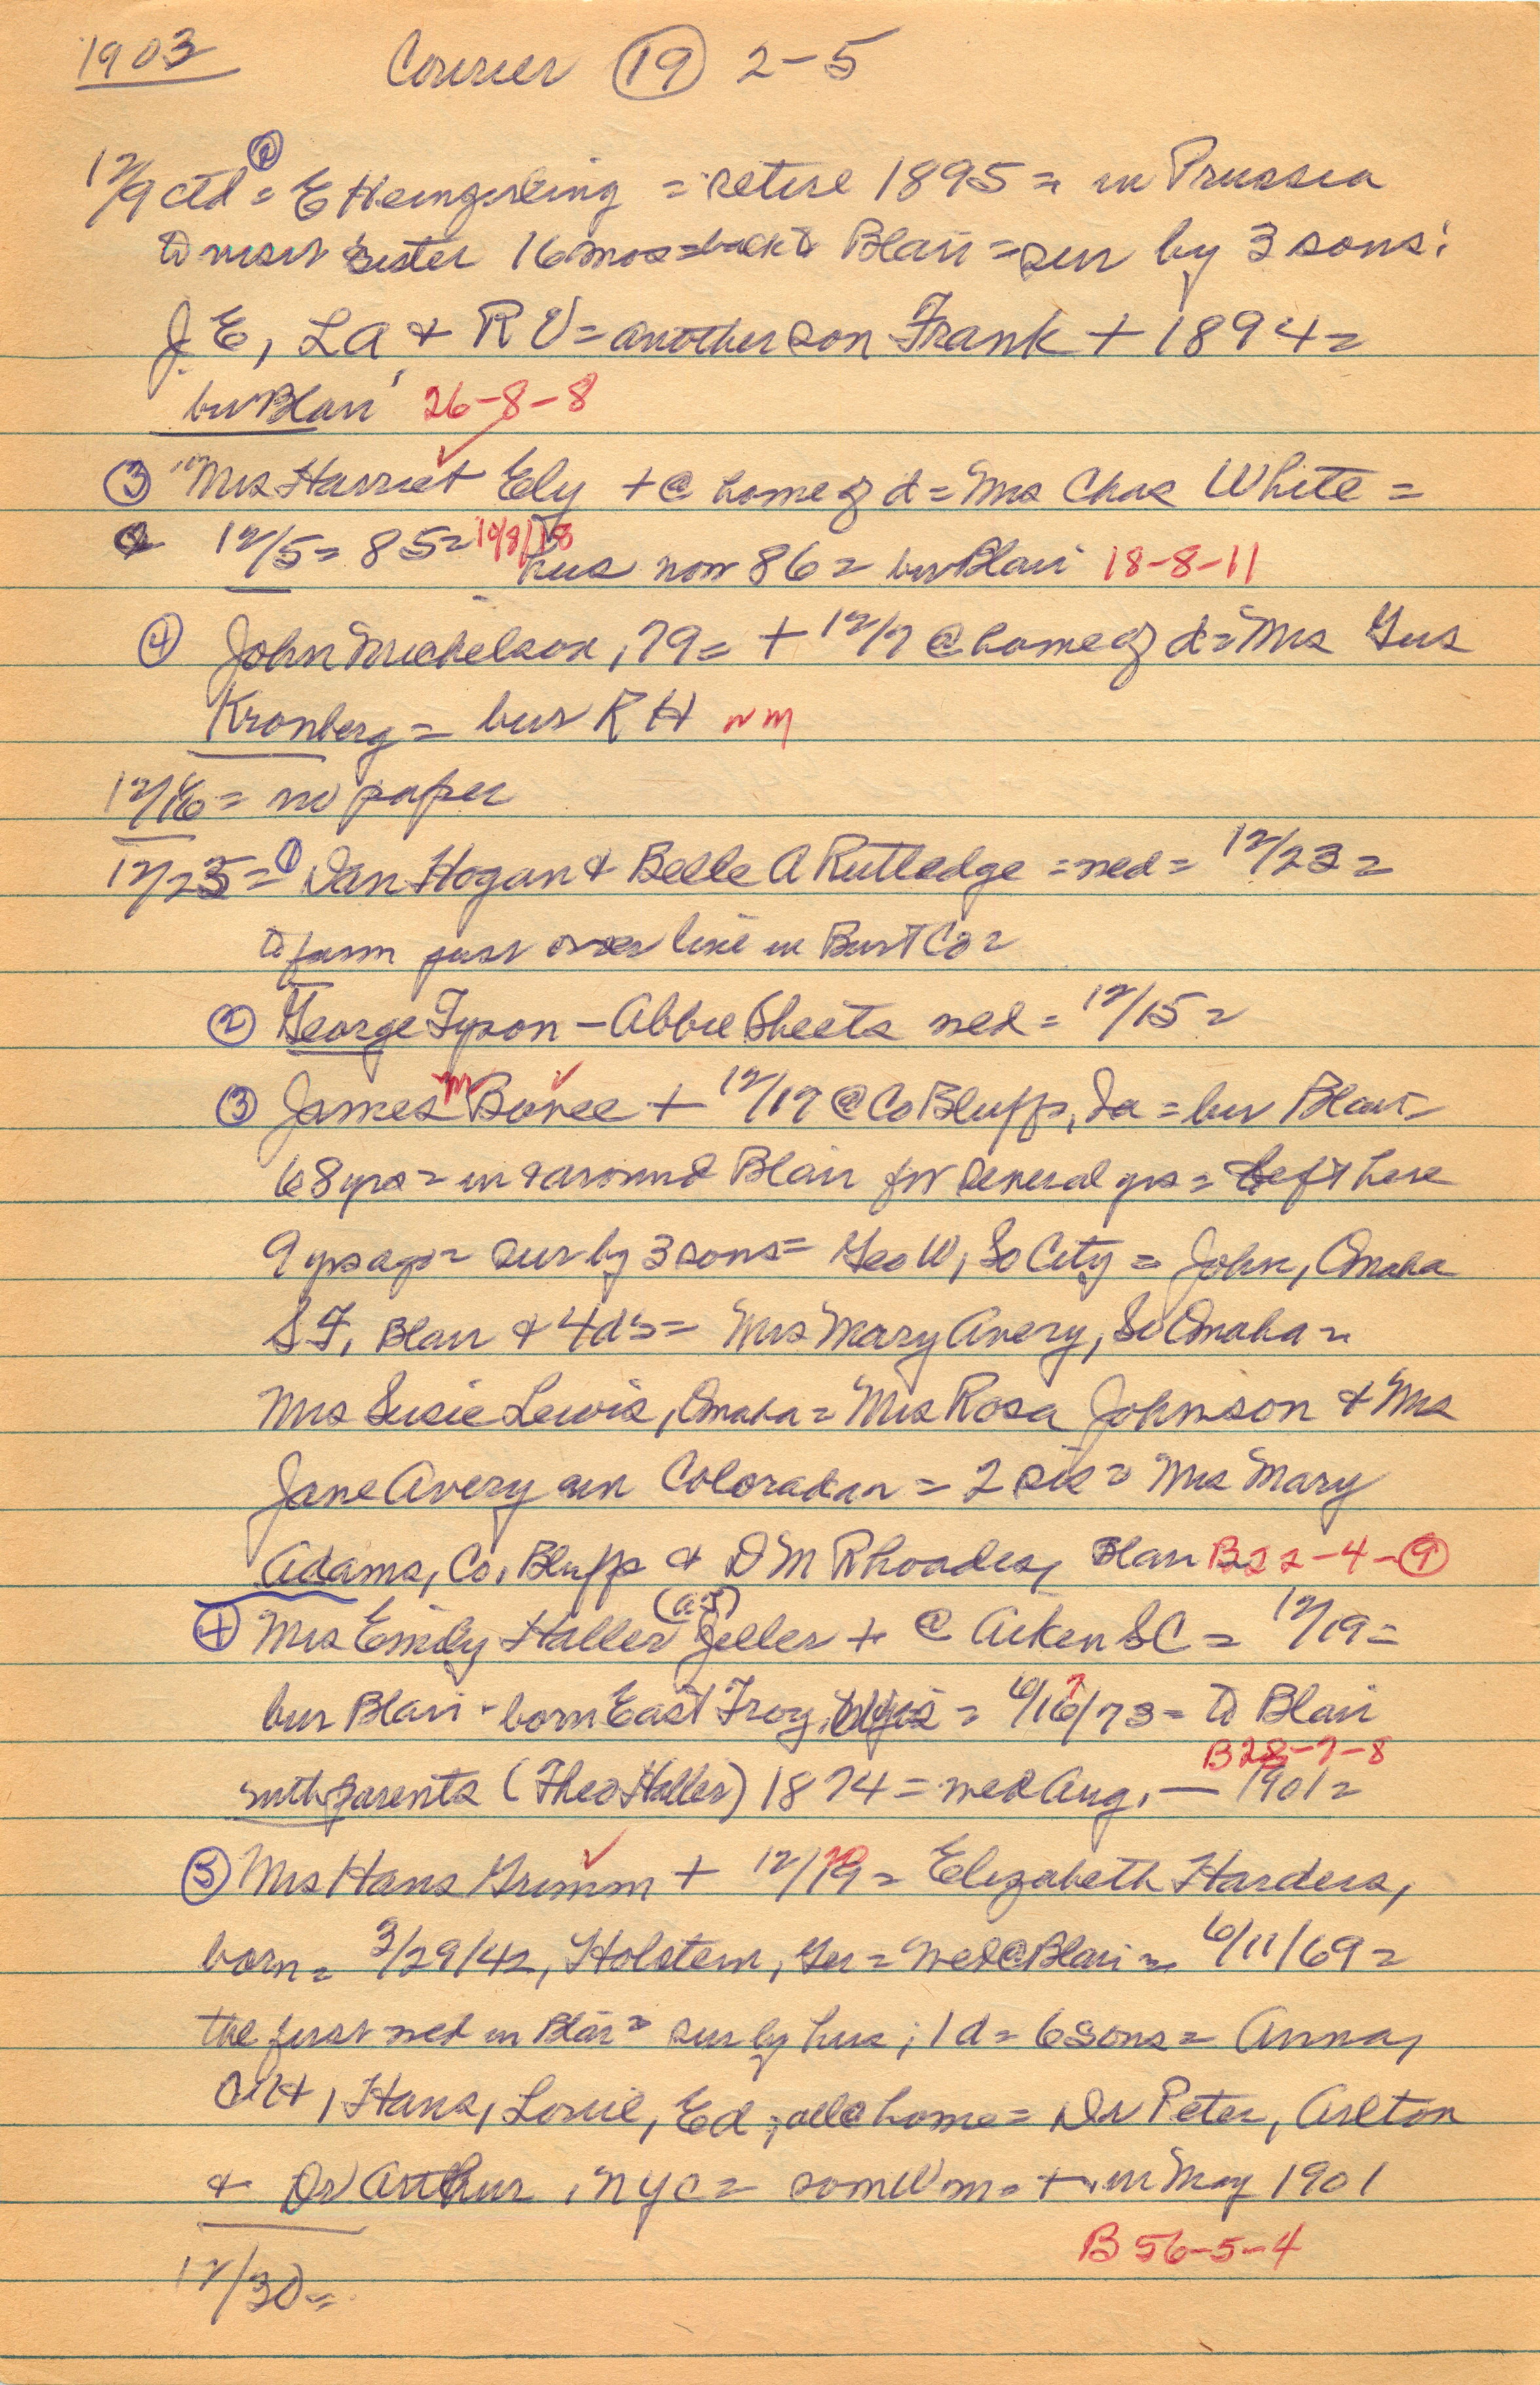 1903 Courier 19 2-5
12/9 ctd = 2 E Hengerling = retire 1895 = in Prussia
to visit sister 16 mos = back to Blair = sur by 3 sons:
J E, L A & R V = another son Frank + 1894 =
bur Blair 26-8-8
3 Mrs Harriet Ely + @ home of d = Mrs Chas White =
12/5 = 85 = hus now 86 = bur Blair 18-8-11
4 John Michelson, 79 = + 12/7 @ home of d = Mrs Gus
Kronberg = bur R H NM
12/16 = no paper
12/23 = 1 Dan Hogan & Belle A Rutledge = wed = 12/23 =
to farm just over line in Burt Co =
2 George Tyson - Abbie Sheets wed = 12/15 =
3 James M Bovee + 12/17 @ Co Bluffs, Ia = bur Blair =
68 yrs = in & around Blair for several yrs = left here
9 yrs ago = sur by 3 sons = Geo W, So City = John, Omaha
S F, Blair & 4 d's = Mrs Mary Avery, So Omaha =
Mrs Susie Lewis, Omaha = Mrs Rosa Johnson & Mrs
Jane Avery in Colorado = 2 sis = Mrs Mary
Adams, Co. Bluffs & D M Rhoades, Blair B22-4-9
4 Mrs Emily Haller Jeller + @ Aiken SC = 12/19 =
bur Blair - born East Troy, Wis = 6/16/73 = to Blair
B28-7-8
with parents (Theo Haller) 1874 = wed Aug. — 1901 =
5 Mrs Hans Grimm + 12/19 = Elizabeth Harders,
born = 3/29/42, Holstein, Ger = wed @ Blair = 6/11/69 =
the first wed in Blair = sur by hus; 1 d = 6 sons = Anna,
Hans, Louie, Ed; all @ home = Dr Peter, Arlton
& Dr Arthur, NYC = son Wm = + in May 1901
B 56-5-4
12/30 =